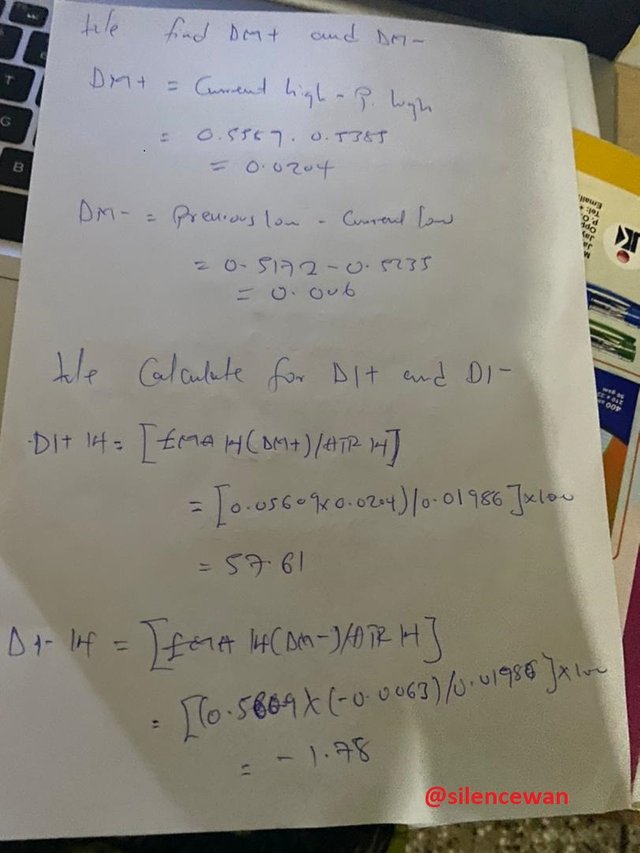 We find DM+ and DM-
DM+ = Current high - P. high
= 0.5567. 0.5385
= 0.0204
DM- = Previous low - Current low
= 0.5172 - 0.5235
= 0.006
We Calculate for DI+ and DI-
DI+ 14 = [EMA 14(DM+)/ATR 14]
= [0.05609x0.0204)/0.01986]x100
= 57.61
DI- 14 = [EMA 14(DM-)/ATR 14]
= [(0.5609 x (-0.0063)/0.01986]x100
= -1.78
@silencewan
T
G
B
JK
400